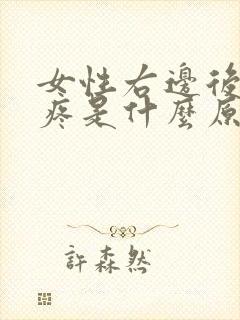 女性右邊後
疼是什麼原
許森然